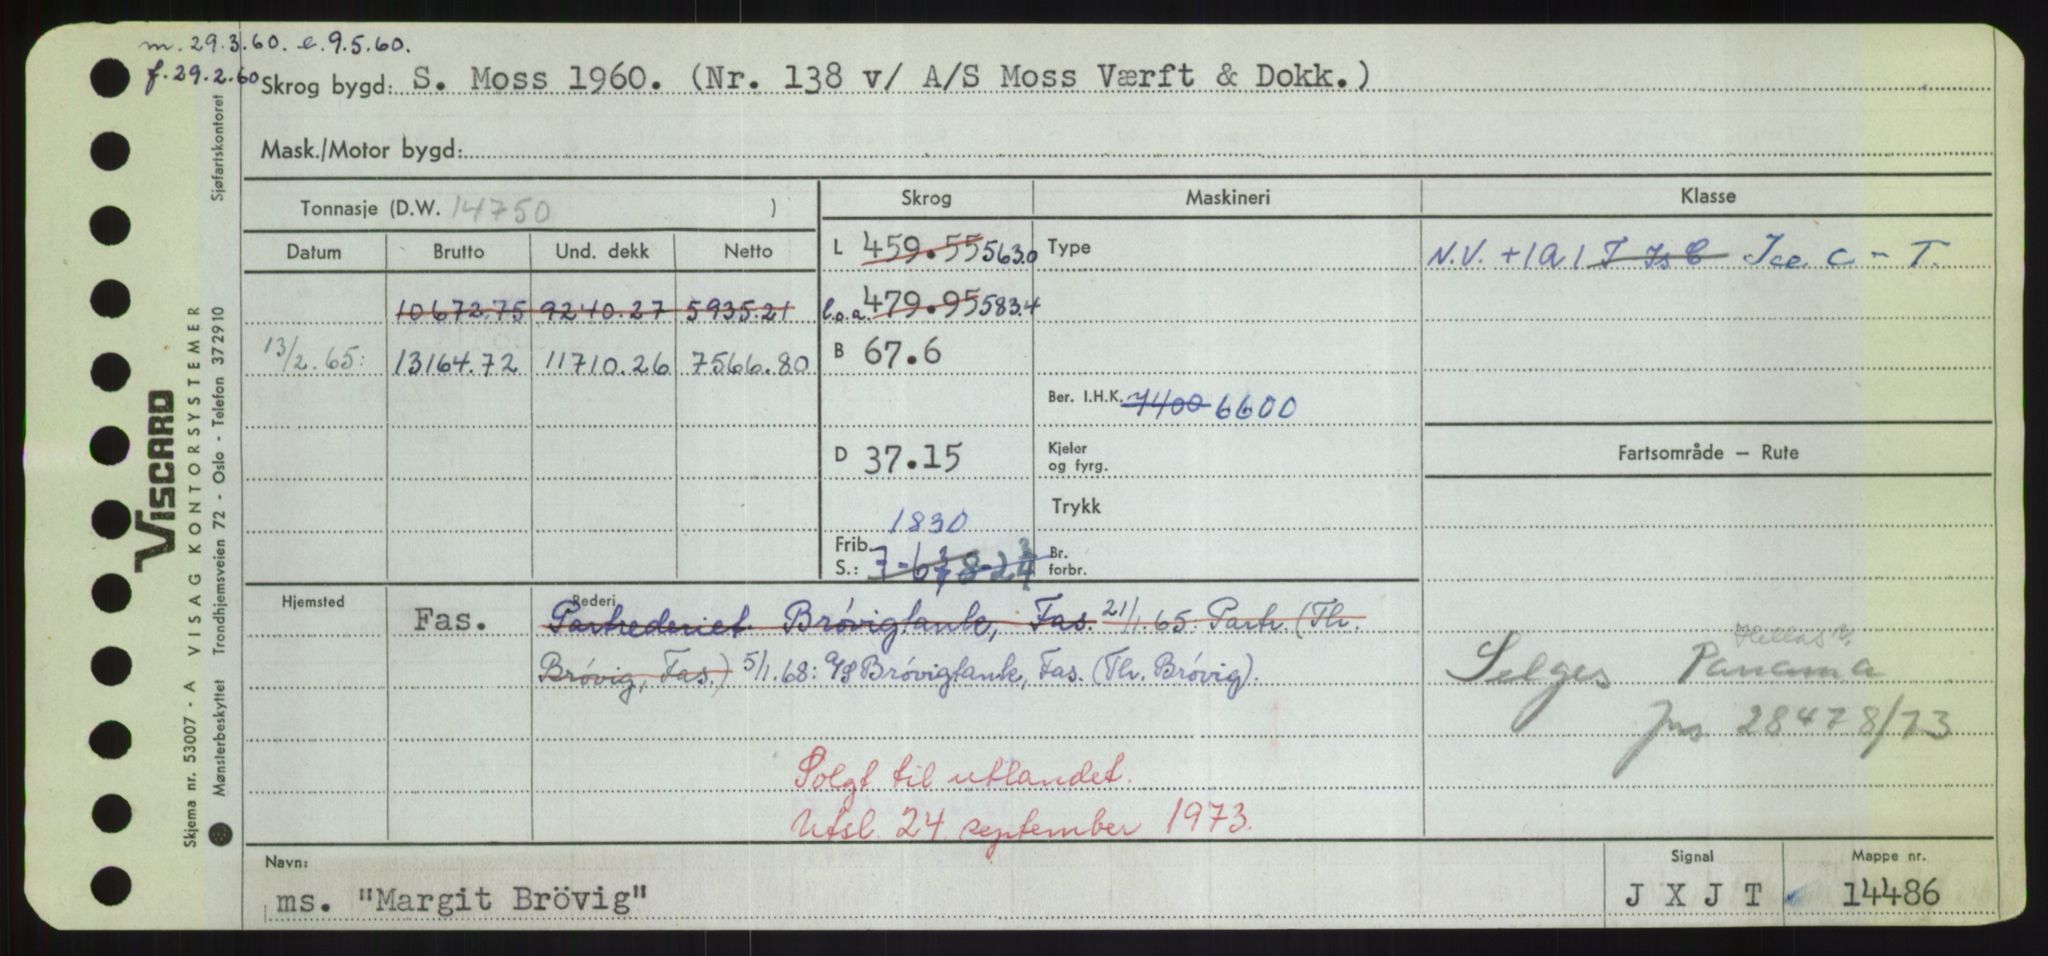 m. 29.3.60. e. 9.5.60.
f. 29.2.60 Skrog bygd: S. Moss 1960. (Nr. 138 v/ A/S Moss Værft & Dokk.)
Mask./Motor bygd:
Tonnasje (D.W. 14750 )
Skrog Maskineri Klasse
Datum Brutto Und. dekk Netto
L 459.55 563.0 Type
N.V. +1A1 T Is C Ice C - T.
10672.75 9240.27 5935.21
l.o.a. 479.95 583.4
13/2.65: 13164.72 11710.26 7566.80
B 67.6
Ber. I.H.K. 7400 6600
D 37.15
Kjeler
og fyrg.
Fartsområde — Rute
Trykk
1830
Frib.
S.: 7-6 3/4 8-2 3/4
Br.
forbr.
Hjemsted Rederi
Fas. Partrederiet Brövigtank, Fas. 21/1.65: Partr. (Th.
Brövig, Fas.) 5/1.68: A/S Brövigtank, Fas. (Th. Brövig).
Hellas
Selges Panama
28478/73
Solgt til utlandet.
Utsl. 24 september 1973.
Navn: Signal Mappe nr.
ms. "Margit Brövig" J X J T 14486
VISCARD
VISAG KONTORSYSTEMER
Skjema nr. 53007 - A
Mønsterbeskyttet Trondhjemsveien 72 - Oslo - Telefon 372910 Sjøfartskontoret